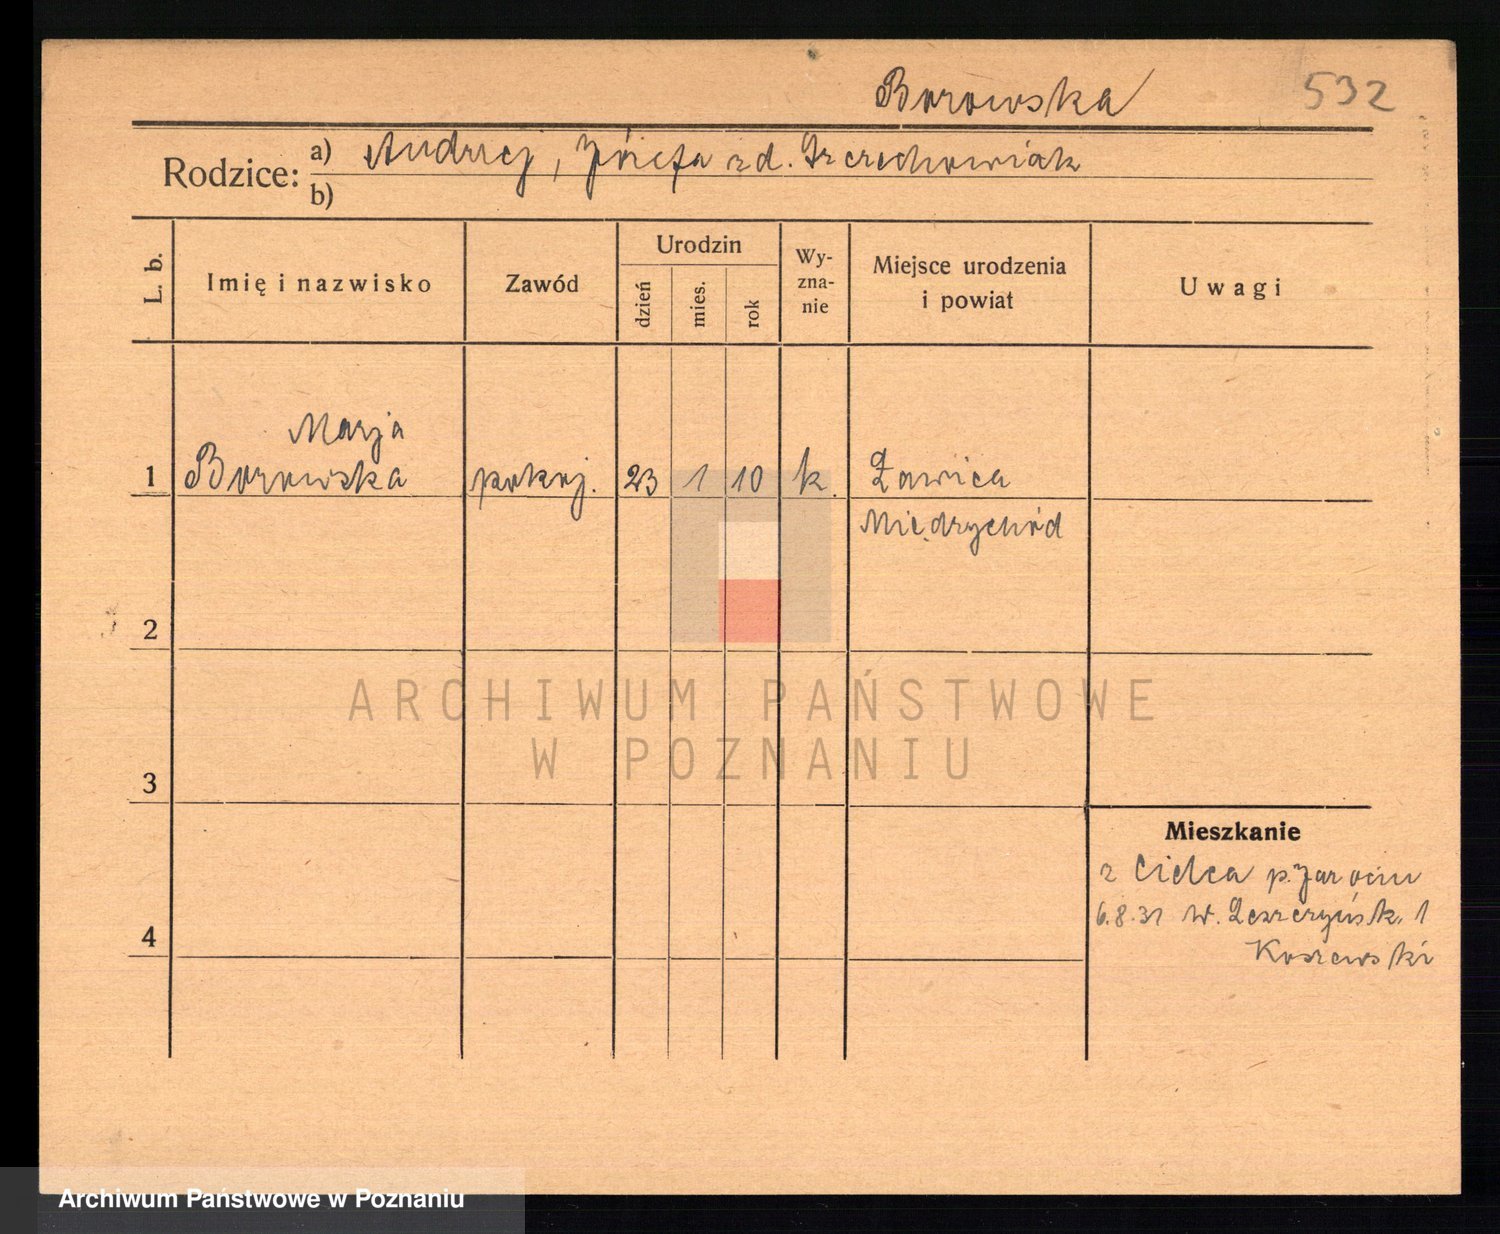 Borowska 532
Rodzice: a) Andrzej, Józefa zd. Grzechowiak
b)
L. b. Imię i nazwisko Zawód Urodzin dzień mies. rok Wy-zna-nie Miejsce urodzenia i powiat Uwagi
Marja
1 Borowska pokoj. 23 1 10 k. Ławica
Międzychód
2
ARCHIWUM PAŃSTWOWE
W POZNANIU
3
Mieszkanie
z Cielca p. Jarocin
6.8.31 W. Leszczyńsk. 1
4
Koszewski
Archiwum Państwowe w Poznaniu